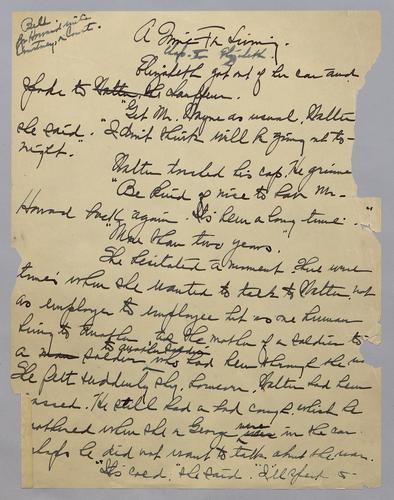 A Time For Living.
Chap. I Elizabeth
Elizabeth got out of her car and
spoke to Walter, the chauffeur.
"Get Mr. Wayne as usual, Walter
she said. "I don't think will be going out to-
night."
Walter touched his cap. He grinned
"Be kind of nice to have Mr.
Howard back again. It's been a long time."
"More than two years.
She hesitated a moment. There were
times when she wanted to talk to Walter, not
as employer to employee but as one human
being to another, as the mother of a soldier to
a soldier who had been through the
She felt suddenly shy, however. Walter had been
gassed. He still had a bad cough, which he
smothered when she or George were in the car.
he did not want to talk about the war.
"It's cold," she said. "I'll